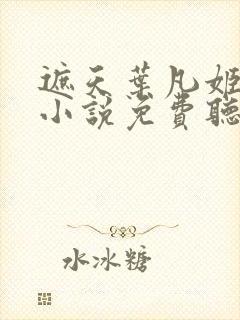 遮天葉凡姬
小說免費聽
水冰糖